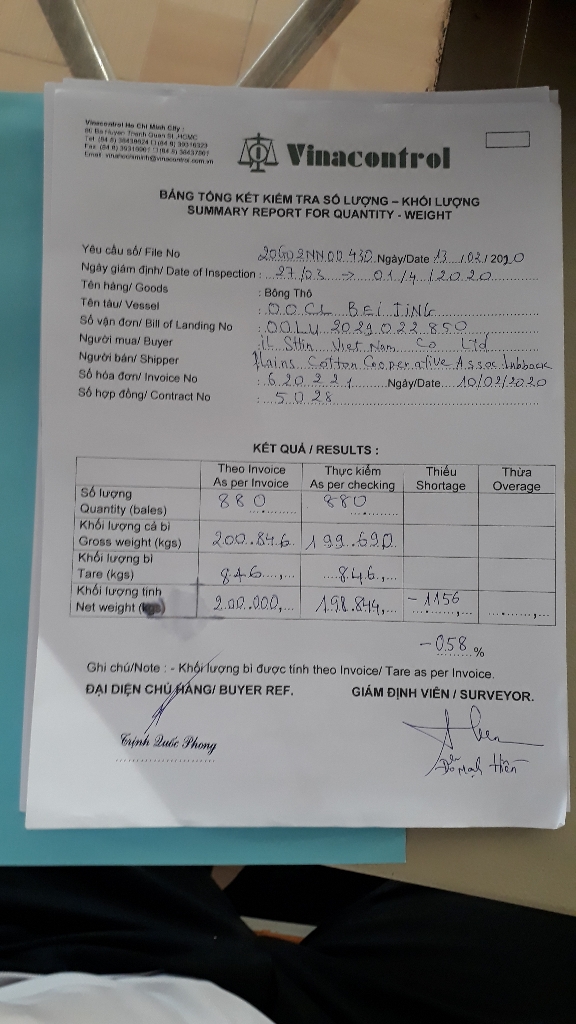 Vinacontrol Ho Chi Minh City :
80 Ba Huyen Thanh Quan St.,HCMC
Vinacontrol
BẢNG TỔNG KẾT KIỂM TRA SỐ LƯỢNG – KHỐI LƯỢNG
SUMMARY REPORT FOR QUANTITY - WEIGHT
Yêu cầu số/ File No 20G02NN00430 Ngày/Date 13/02/2020
Ngày giám định/ Date of Inspection : 27/03 → 01/4/2020
Tên hàng/ Goods : Bông Thô
Tên tàu/ Vessel : OOCL BEIJING
Số vận đơn/ Bill of Landing No : OOLU 2029022850
Người mua/ Buyer : Viet Nam Co Ltd
Người bán/ Shipper : Plains Cotton Cooperative Assoc Lubbock
Số hóa đơn/ Invoice No : 620221 Ngày/Date 10/02/2020
Số hợp đồng/ Contract No : 5028
KẾT QUẢ / RESULTS :
Theo Invoice Thực kiểm Thiếu Thừa
As per Invoice As per checking Shortage Overage
Số lượng
Quantity (bales) 880 880
Khối lượng cả bì
Gross weight (kgs) 200.846 199.690
Khối lượng bì
Tare (kgs) 846 846
Khối lượng tịnh
Net weight 200.000 198.844 -1156
-0.58 %
Ghi chú/Note : - Khối lượng bì được tính theo Invoice/ Tare as per Invoice.
ĐẠI DIỆN CHỦ HÀNG/ BUYER REF. GIÁM ĐỊNH VIÊN / SURVEYOR.
Trịnh Quốc Phong
Đỗ Mạnh Hiền